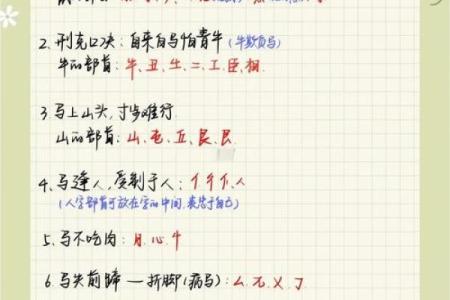 2. 刑克口决：自来白马怕青牛（牛欺负马）
牛的部首：牛、丑、生、二、工、臣、相.
3 马上山头，寸步难行
山的部首：山、屯、丘、艮、良.
4、马逢人，受制于人：亻、彳、人
（人字部首可放在字的中间，表忠于自己）
5、马不吃肉：月、心、忄
6、马失前蹄 — 折脚（病马）：厶、兀、乂、丁